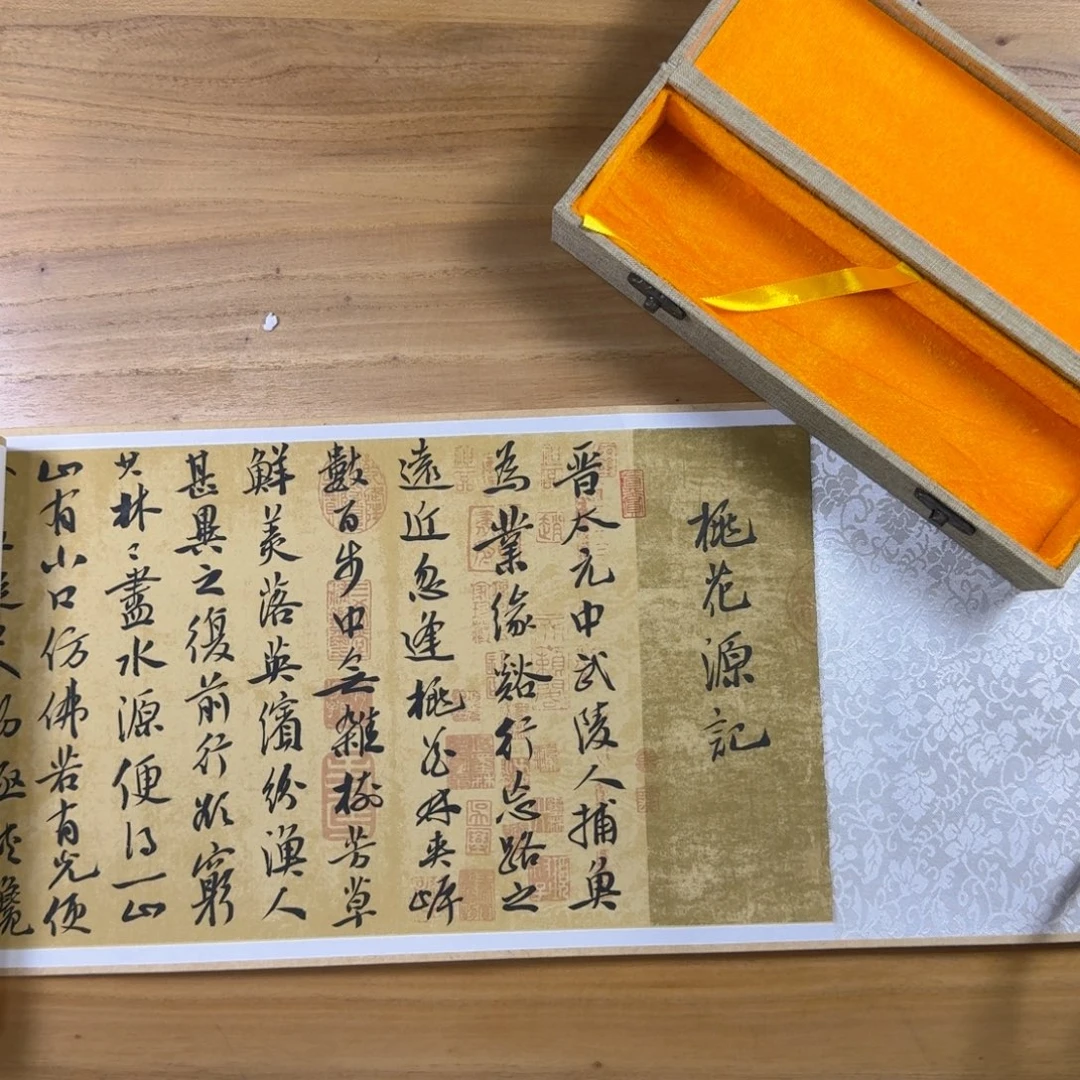 桃花源記
晋太元中武陵人捕魚
為業緣谿行忘路之
遠近忽逢桃花林夾岸
數百步中無雜樹芳草
鮮美落英濱紛漁人
甚異之復前行欲窮
其林〻盡水源便得一山
山有小口仿佛若有光便